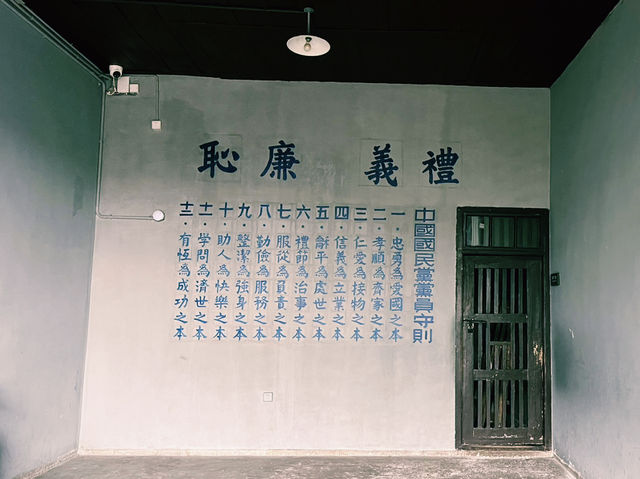 禮義廉恥
中國國民黨黨員守則
一·忠勇為愛國之本
二·孝順為齊家之本
三·仁愛為接物之本
四·信義為立業之本
五·龢平為處世之本
六·禮節為治事之本
七·服從為負責之本
八·勤儉為服務之本
九·整潔為強身之本
十·助人為快樂之本
十一·學問為濟世之本
十二·有恆為成功之本